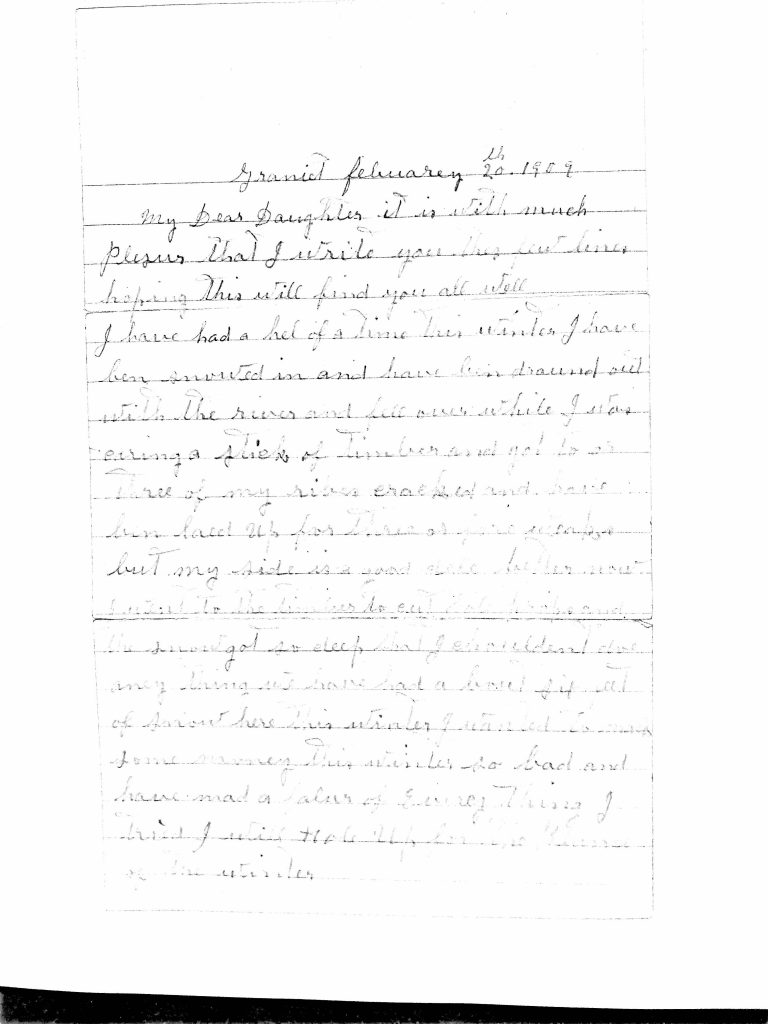 Graniet febuarey 20th. 1909
My Dear Daughter it is with much
Plesur that I write you thes few lines
hoping this will find you all well
I have had a hel of a time this winter I have
ben snowed in and have bin dround out
with the river and fell over while I was
a stick of timber and got to or
three of my rives cracked and have
bin laed up for three or fore weaks
but my side is a good dele better now
I went to the timber to cut and
the snow got so deep that I chouldent doe
aney thing we have had a bout six feet
of snow here this winter I wanted to mak
some money this winter so bad and
have mad a falur of Everey thing I
tried I will Hole Up for the
of the winter